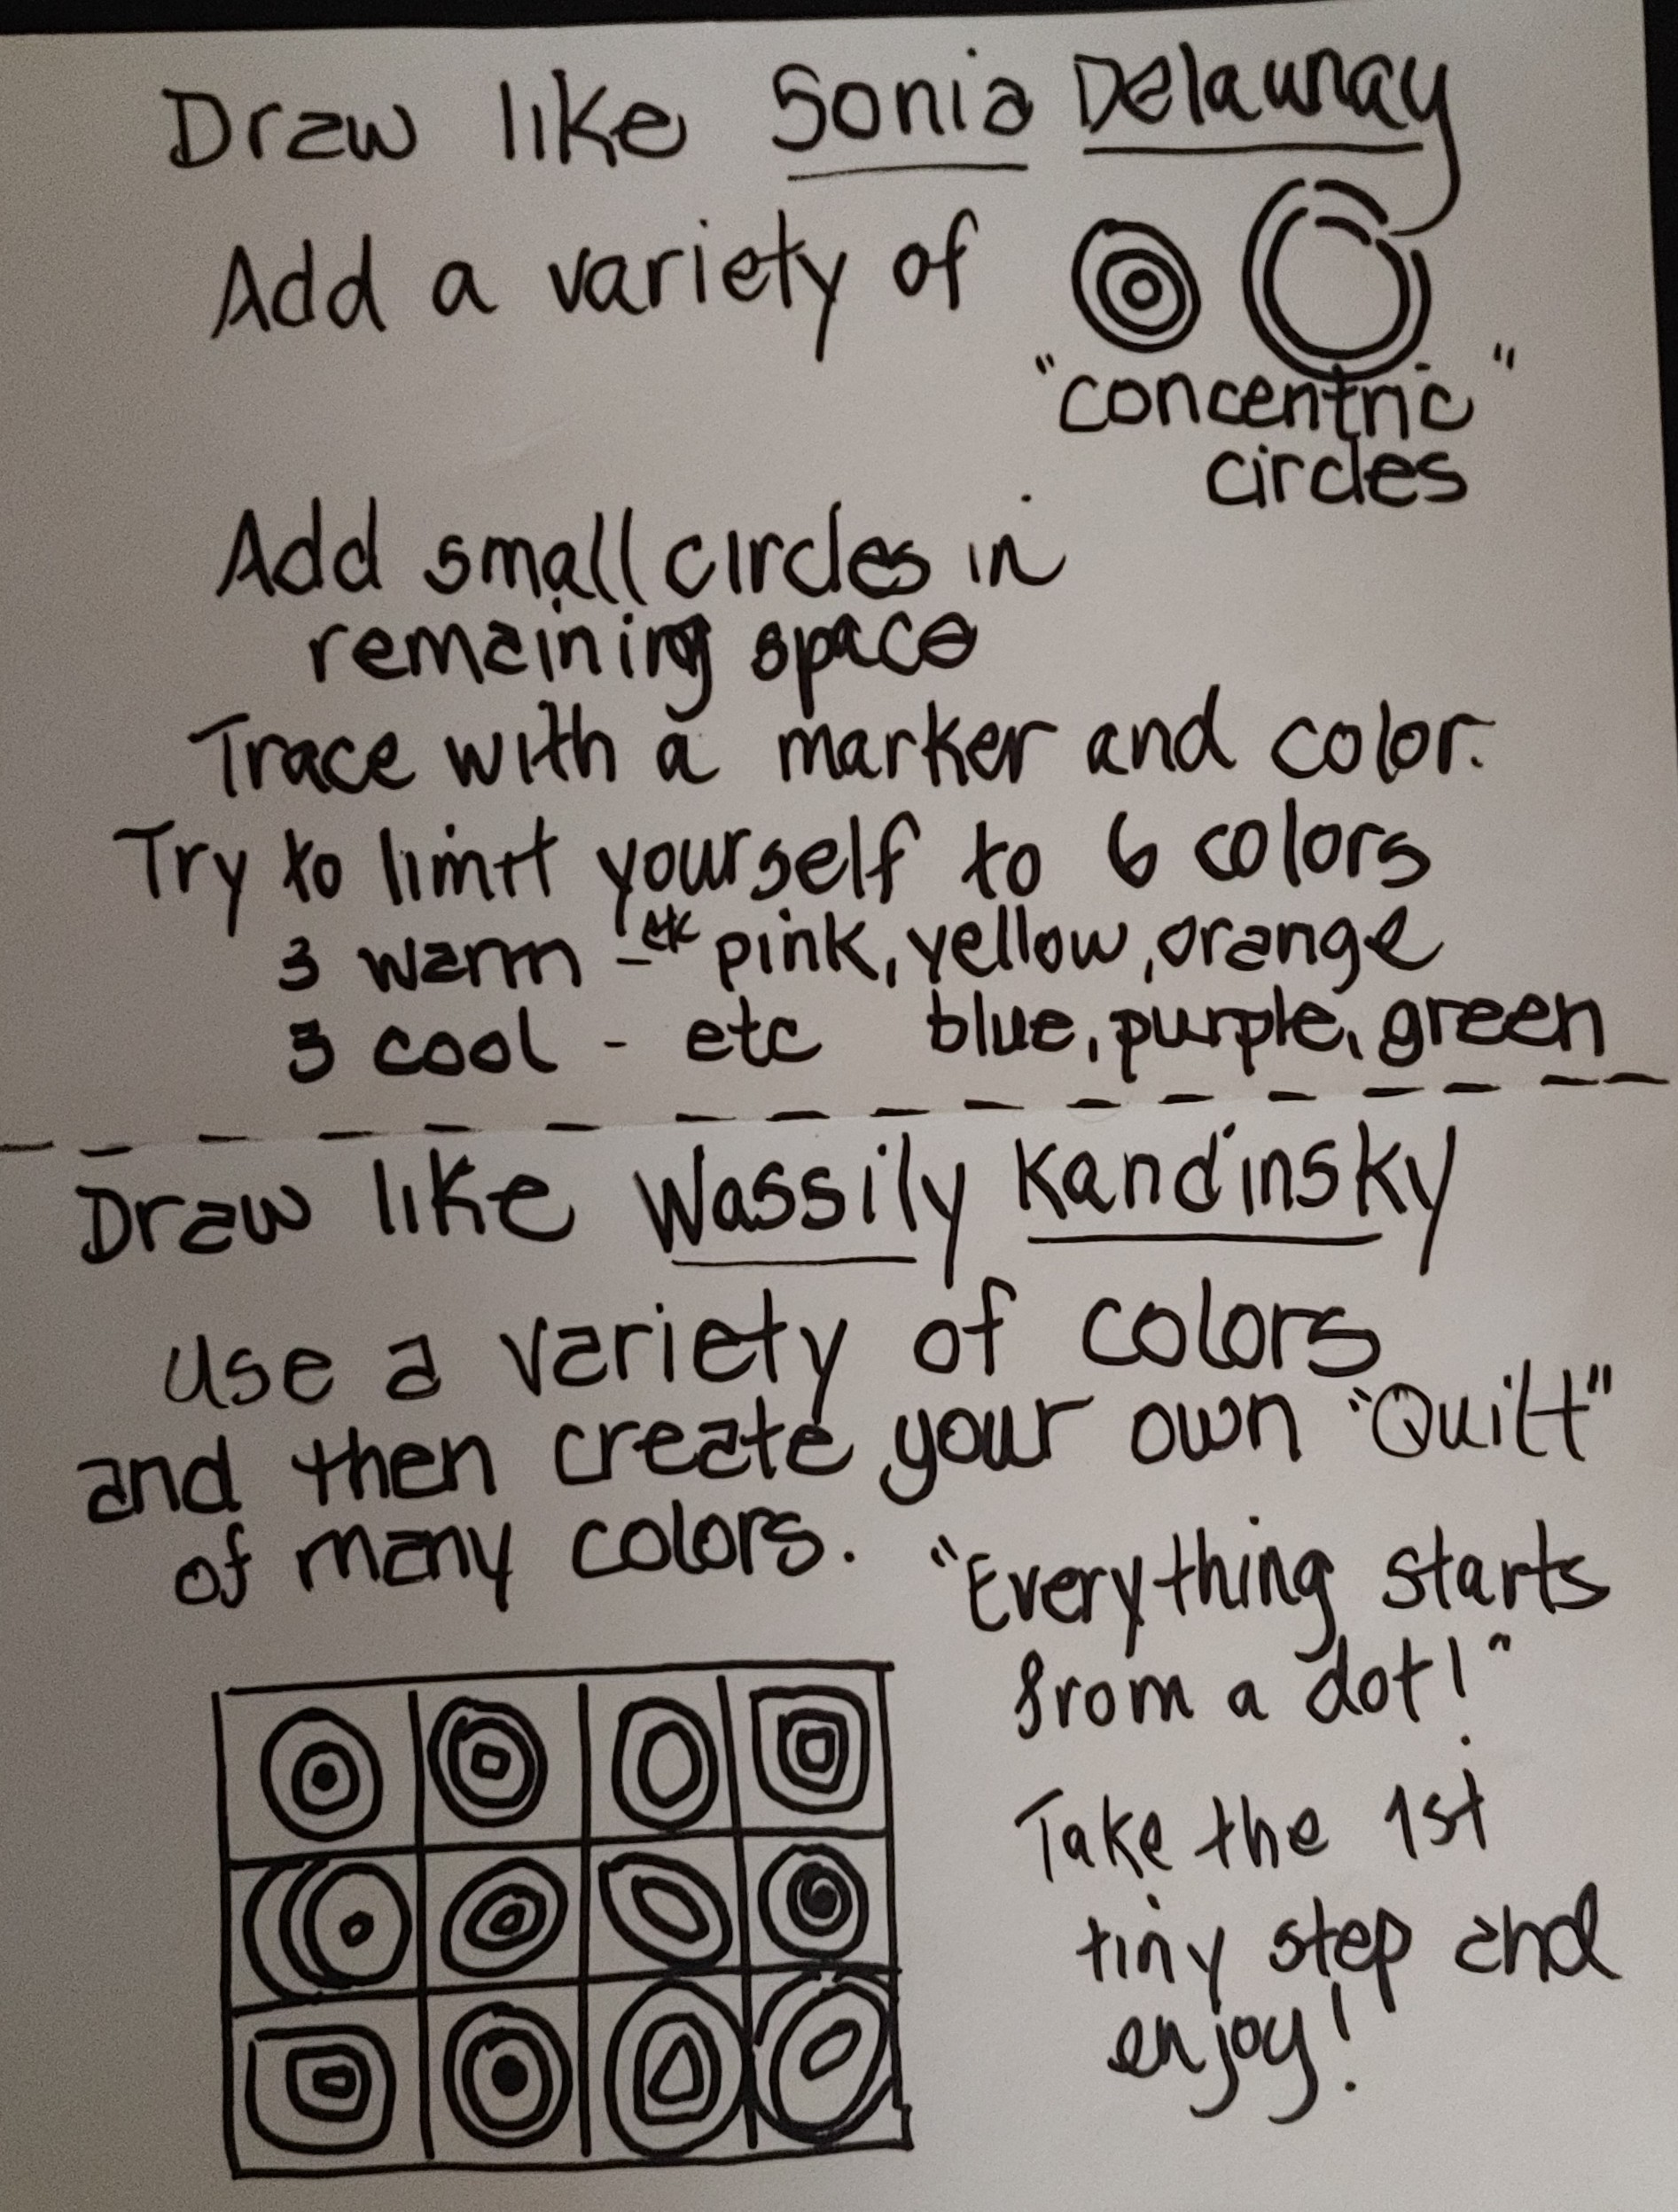 Draw like Sonia Delaunay
Add a variety of
"concentric"
circles
Add small circles in
remaining space
Trace with a marker and color.
Try to limit yourself to 6 colors
3 warm - etc pink, yellow, orange
3 cool - etc blue, purple, green
Draw like Wassily Kandinsky
Use a variety of colors
and then create your own "Quilt"
of many colors.
"Everything starts
from a dot!"
Take the 1st
tiny step and
enjoy!